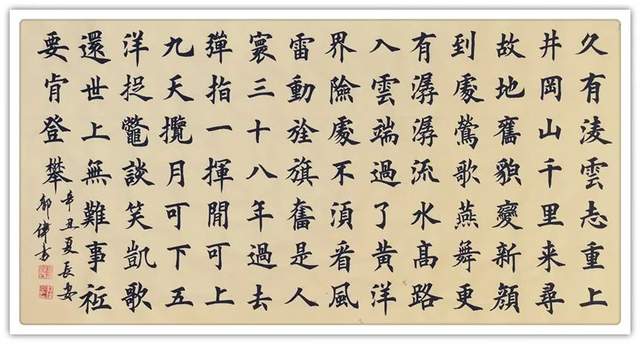 久有淩雲志重上
井岡山千里来尋
故地舊貌變新顔
到處鶯歌燕舞更
有潺潺流水高路
入雲端過了黄洋
界險處不須看風
雷動旌旗奮是人
寰三十八年過去
彈指一揮間可上
九天攬月可下五
洋捉鼈談笑凱歌
還世上無難事衹
要肯登攀
辛丑夏長安